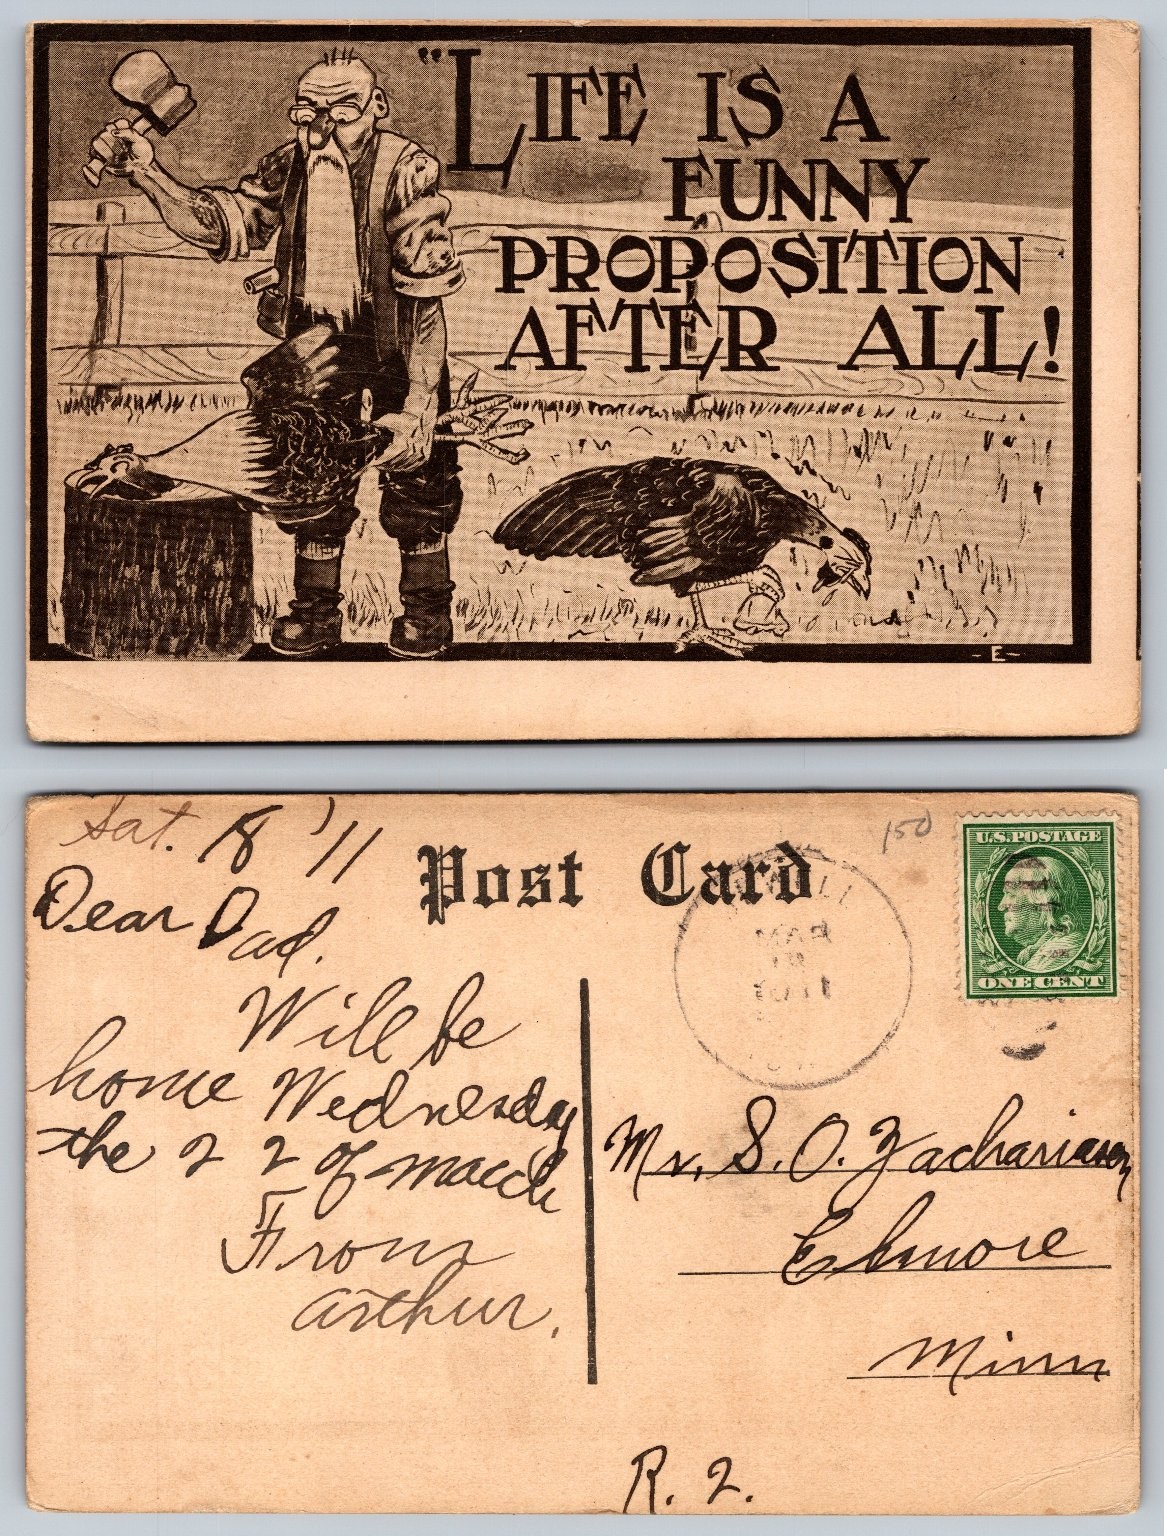 "LIFE IS A
FUNNY
PROPOSITION
AFTER ALL!
-E-
Sat. 18 '11
Dear Dad.
Will be
home Wednesday
the 22 of March
From
Arthur.
Post Card
150
U.S. POSTAGE
ONE CENT
MAR
18
Mr. S. O. Zachariasen,
Elmore
Minn
R. 2.